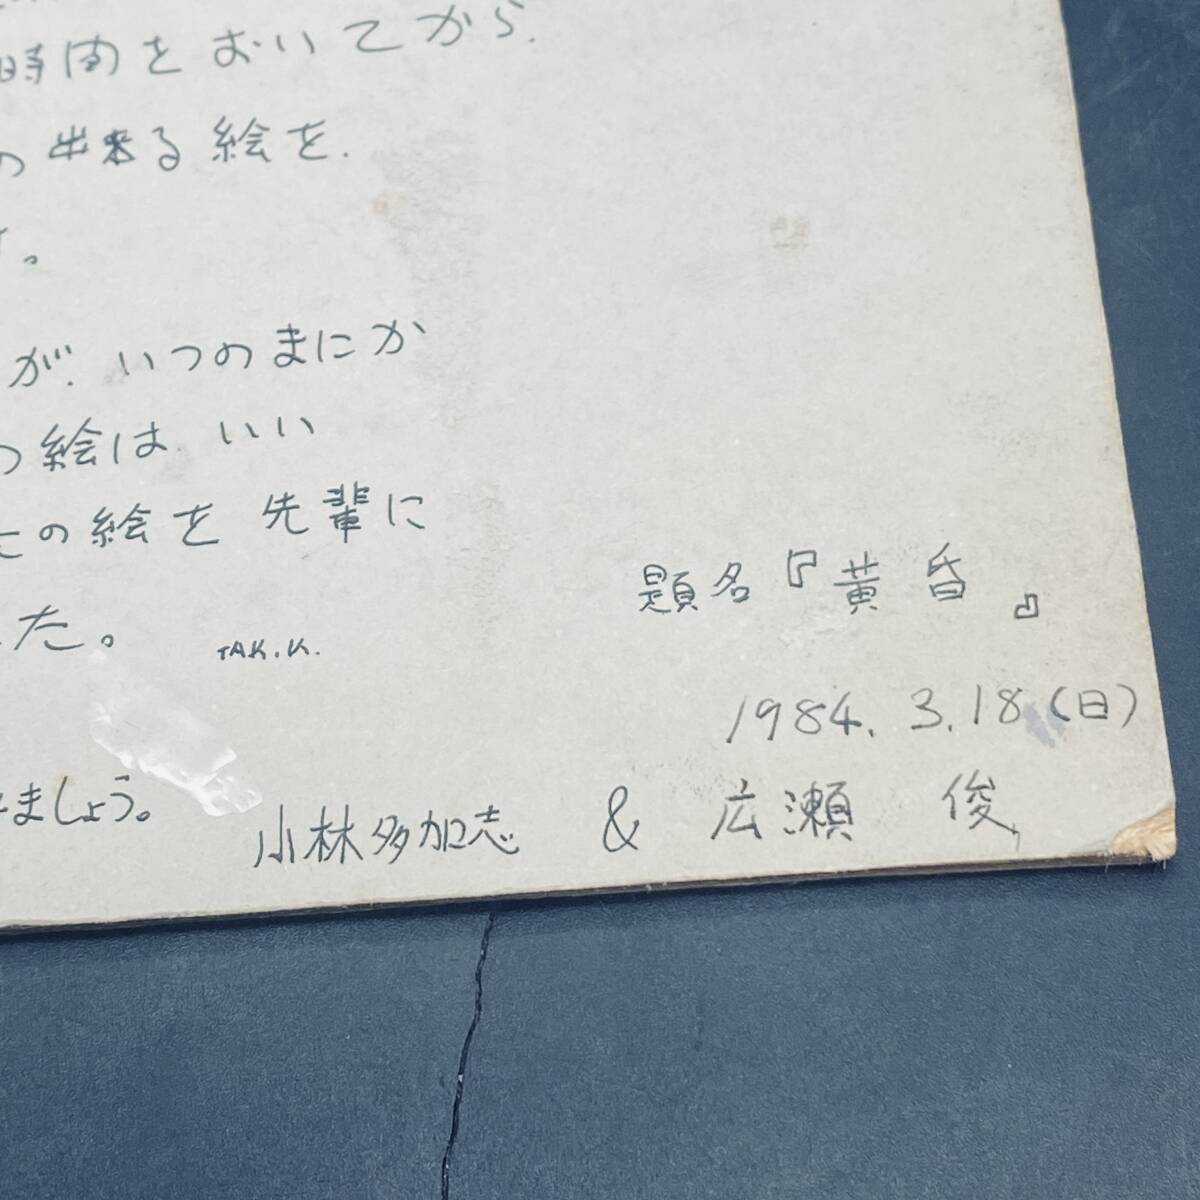 時間をおいてから.
の出来る絵を.
。
が. いつのまにか
つ絵は. いい
の絵を 先輩に
した。 TAK.K.
題名『黄昏』
1984. 3.18(日)
ましょう。
小林多加志 & 広瀬 俊